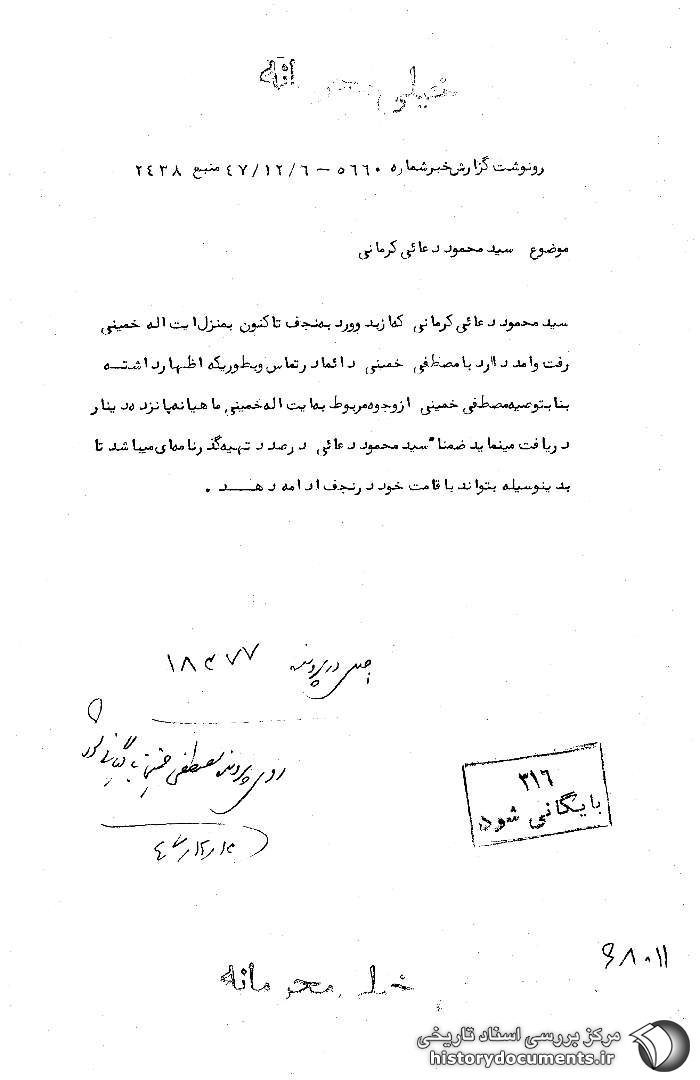 خیلی محرمانه
رونوشت گزارش خبر شماره ۵۶۶۰ – ۴۷/۱۲/۶ منبع ۲۴۳۸
موضوع سید محمود دعائی کرمانی
سید محمود دعائی کرمانی که از بدو ورود به نجف تاکنون بمنزل ایت اله خمینی
رفت وامد دارد با مصطفی خمینی دائما در تماس وبطوریکه اظهار داشتـــه
بنا بتوصیه مصطفی خمینی از وجوه مربوط به ایت اله خمینی ماهیانه پانزده دینار
دریافت مینماید ضمنا" سید محمود دعائی درصدد تهیه گذرنامه ای میباشد تا
بدینوسیله بتواند باقامت خود در نجف ادامه دهـــد .
اصلی در پرونده ۱۸۴۷۷
روی پرونده مصطفی خمینی بایگانی شود
۳۱۶
بایگانی شود
خیلی محرمانه
مرکز بررسی اسناد تاریخی
historydocuments.ir